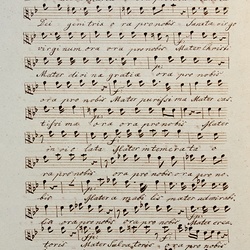 Dei genitrix ora pro nobis Sancta virgo
virginum ora ora pro nobis Mater Christi
Mater divina gratia ora pro nobis
ora pro nobis Mater purissima Mater cas
tissima ora ora pro nobis Mater
inviolata Mater intemerata o
ra pro nobis ora pro nobis ora pro no
bis Mater amabilis mater admirabi
lis ora pro nobis ora pro nobis Mater crea
toris Mater Salvatoris ora pro nobis